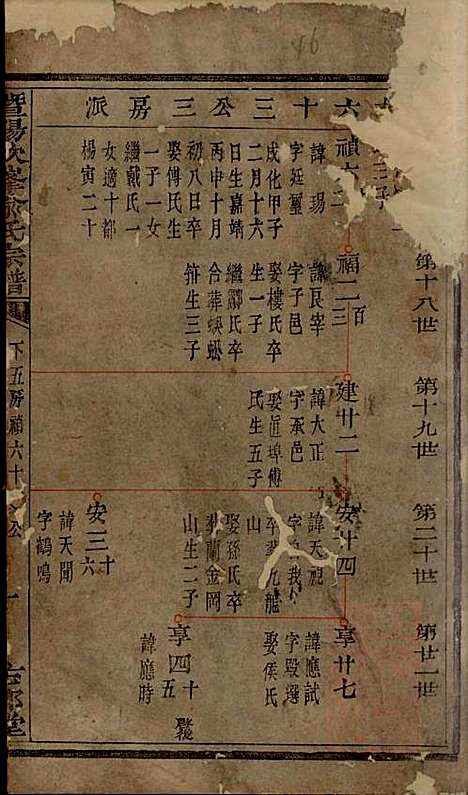 46
六十三公三房派
第十八世
第十九世
第二十世
第廿一世
三子
禎六
諱瑒
字廷璽
成化甲子
二月十六
日生嘉靖
丙申十月
初八日卒
娶傅氏生
一子一女
繼戴氏一
女適十都
楊寅二十
福二百三
諱良宰
字子邑
娶樓氏卒
生一子
繼酈氏卒
合葬蜈蚣
生三子
建廿二
諱大正
字丞邑
娶直埠傅
氏生五子
安十四
諱天祖
字我
卒葬九龍
山
娶孫氏卒
葬蘭金岡
山生二子
安三十六
諱天聞
字鶴鳴
享廿七
諱應試
字毀選
娶侯氏
享四十五
諱應時
暨陽次峯俞氏宗譜
下五房禎六十
公